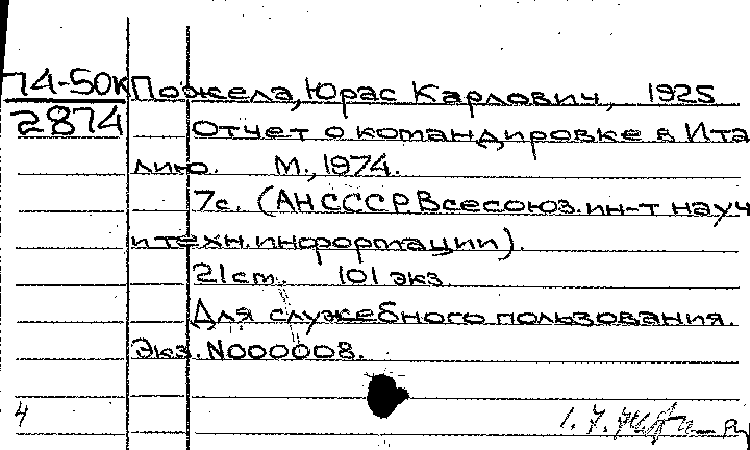 74-50к
2874
Пожела, Юрас Карлович, 1925
Отчет о командировке в Ита
лию. М., 1974.
7с. (АН СССР. Всесоюз. ин-т науч
и техн. информации).
21 ст. 101 экз.
Для служебного пользования.
Экз. N000008.
4